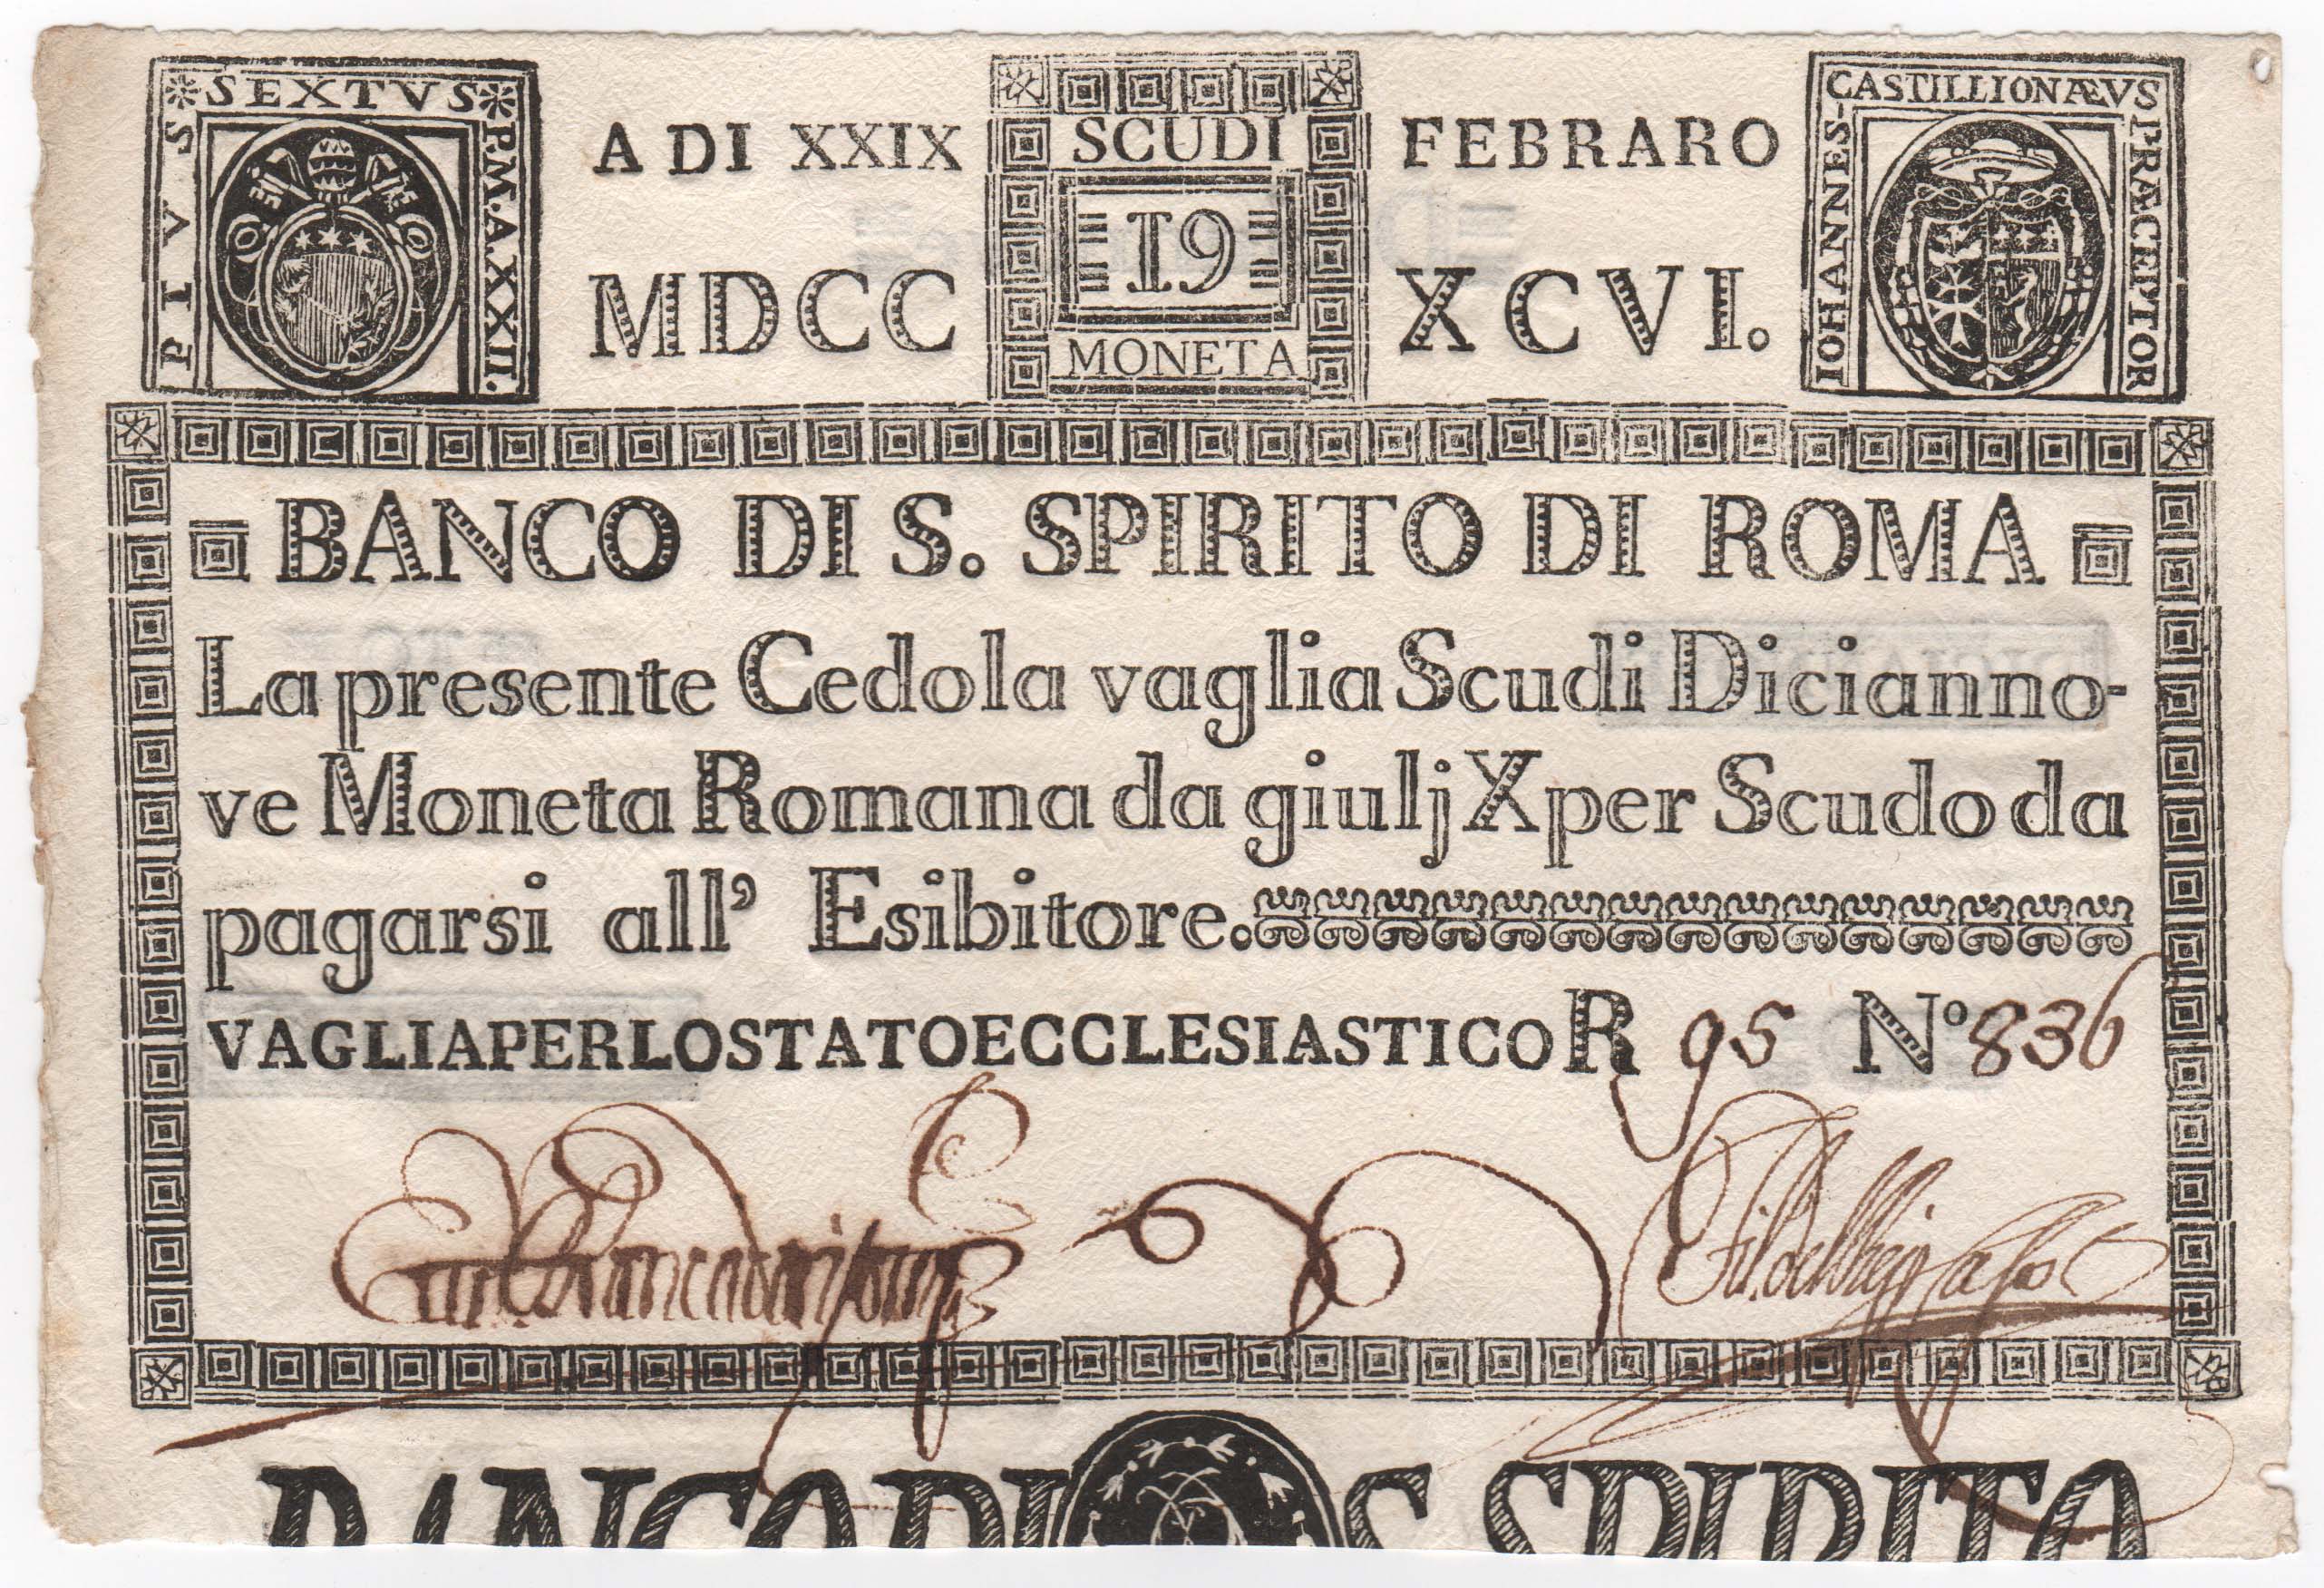 PIVS SEXTVS P.M.A.XXII.
A DI XXIX FEBRARO
SCUDI
19
MONETA
MDCC XCVI.
IOHANNES CASTILLIONÆVS PRÆCEPTOR
BANCO DI S. SPIRITO DI ROMA
La presente Cedola vaglia Scudi Dicianno-
ve Moneta Romana da giulj X per Scudo da
pagarsi all' Esibitore.
VAGLIA PER LO STATO ECCLESIASTICO R 95 Nº 836
BANCO DI S. SPIRITO